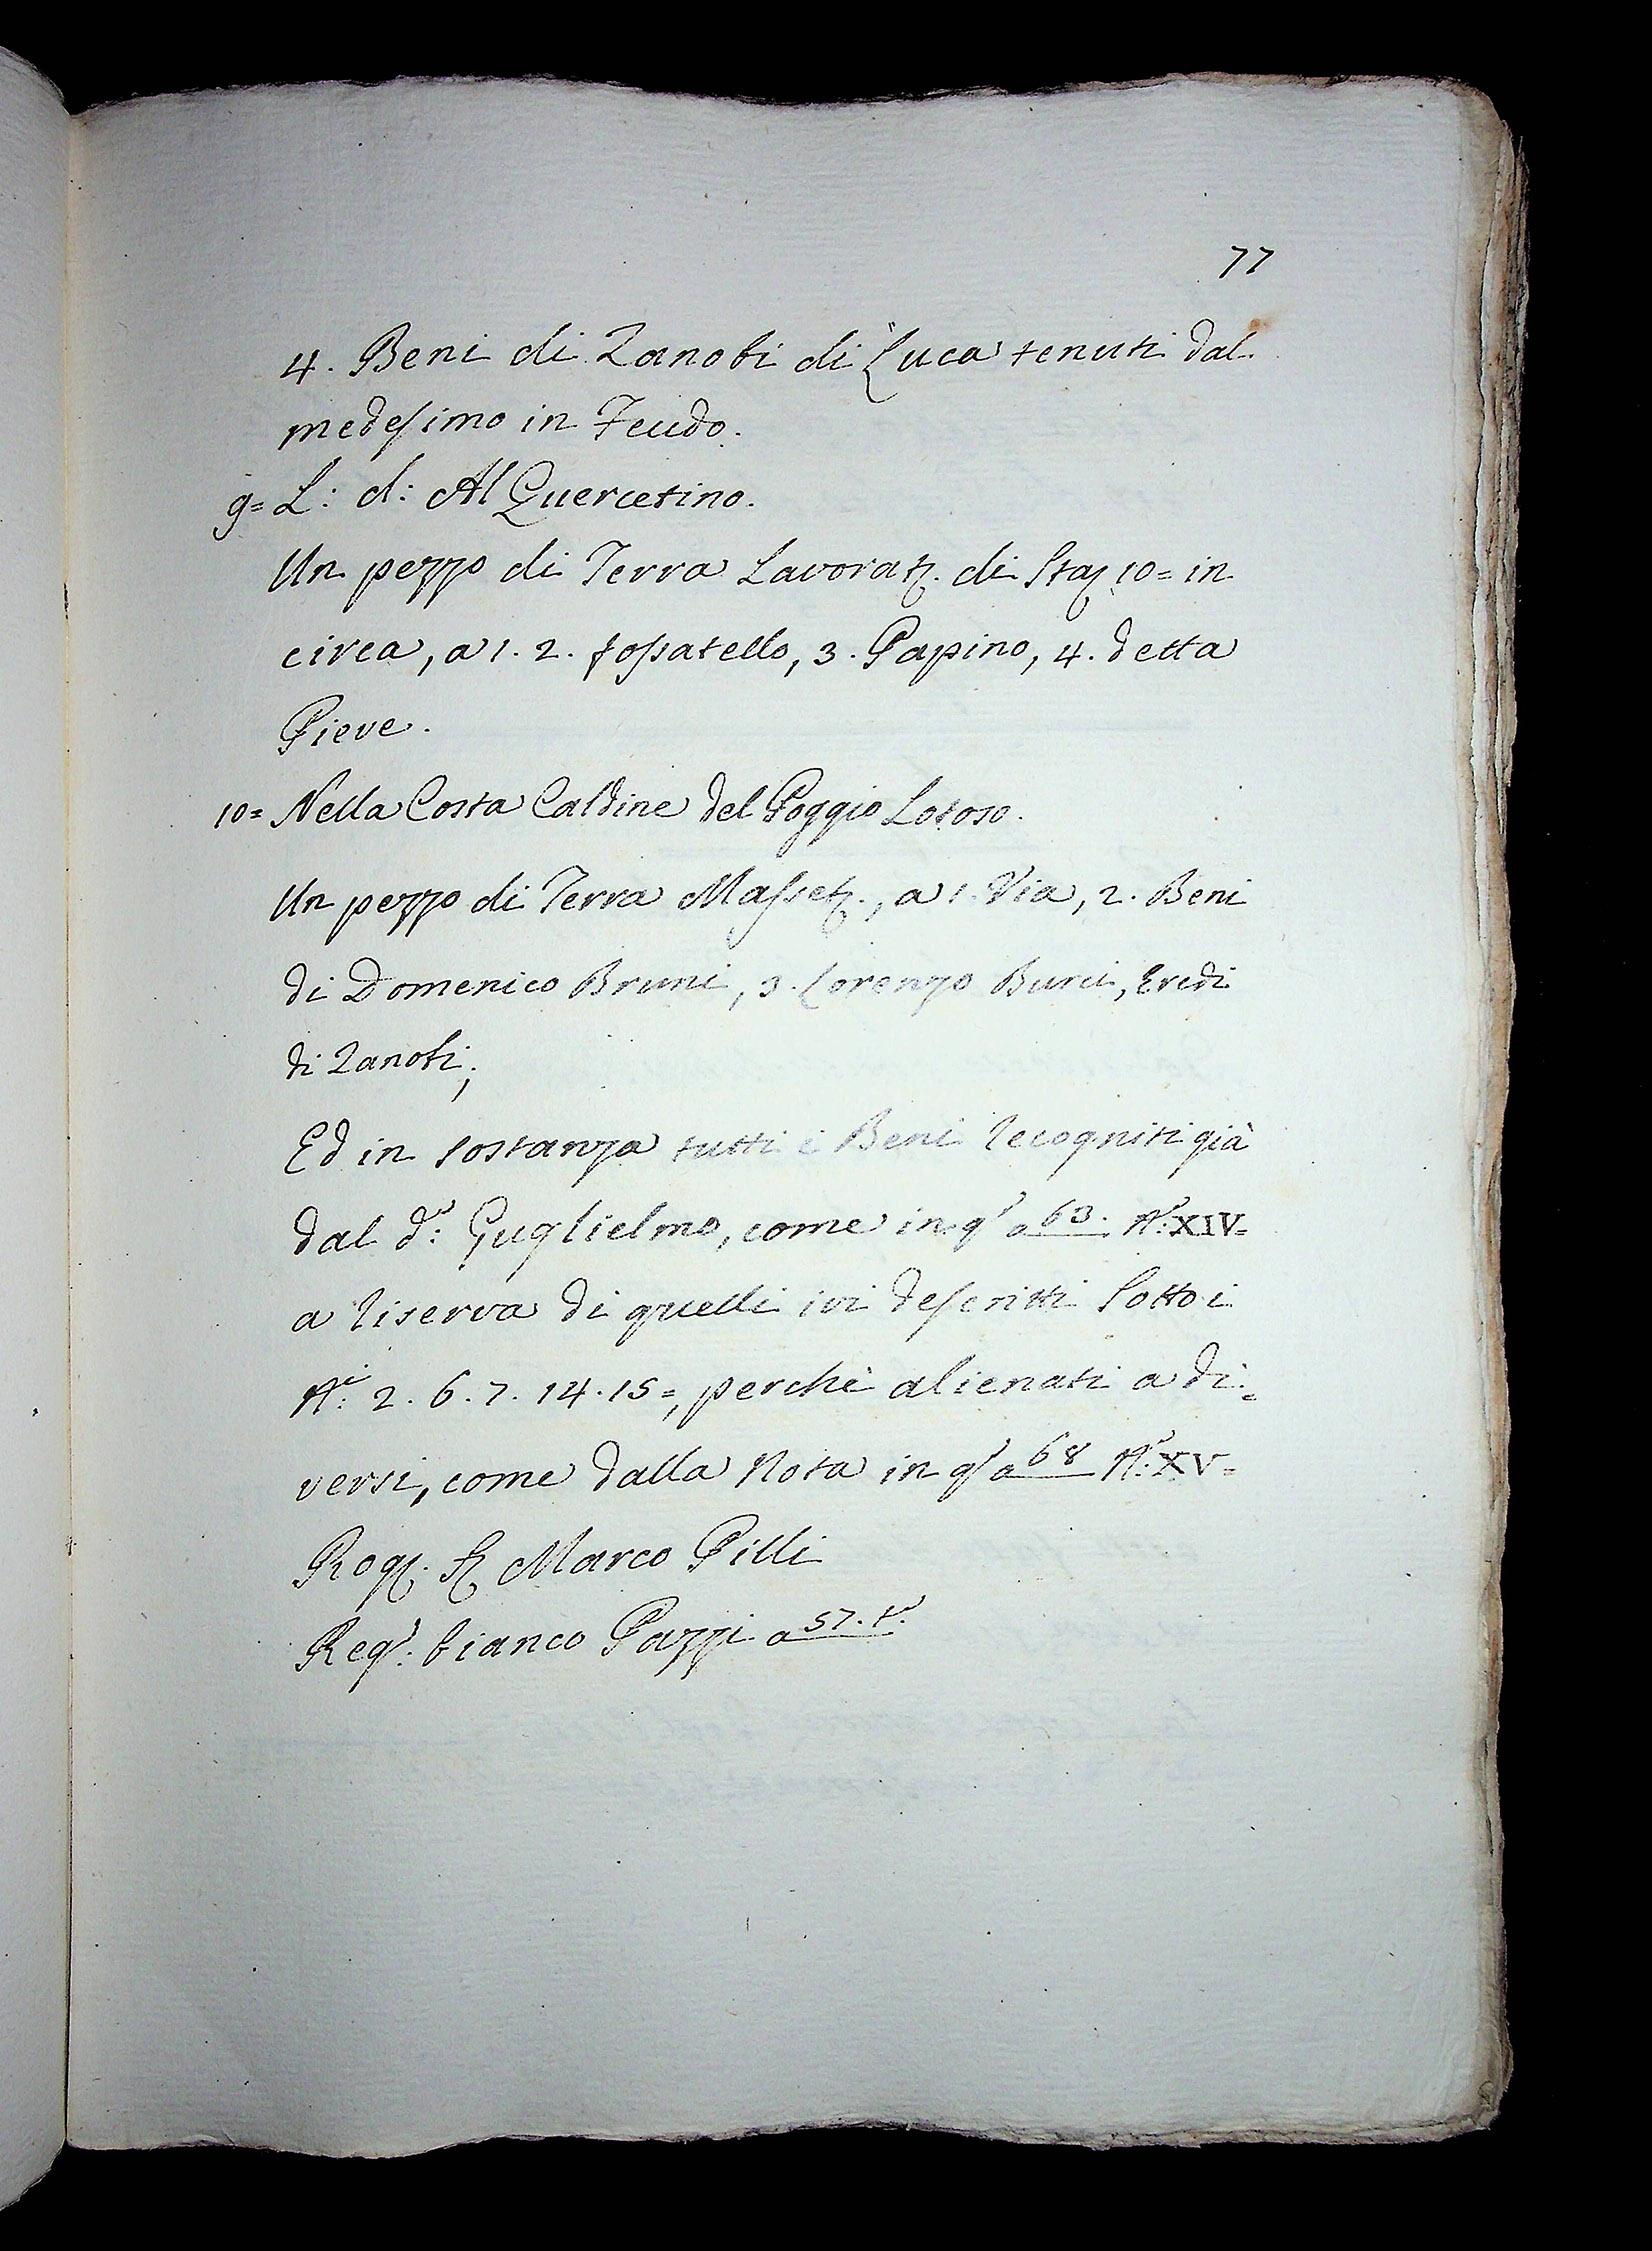 77
4. Beni di Zanobi di Luca tenuti dal
medesimo in Feudo.
9= L: d: Al Quercetino.
Un pezzo di Terra Lavorat. di Sta 10= in
circa, a 1. 2. fossatello, 3. Papino, 4. detta
Pieve.
10= Nella Costa Caldine del Poggio Lotoso.
Un pezzo di Terra Masset., a 1. Via, 2. Beni
di Domenico Bruni, 3. Lorenzo Burci, Eredi
di Zanobi;
Ed in sostanza tutti i Beni recogniti già
dal do: Guglielmo, come in qo a 63. No: XIV=
a riserva di quelli ivi descritti sotto i
Ni: 2. 6. 7. 14. 15=, perchè alienati a di=
versi, come dalla Nota in qo a 68 No: XV=
Rog. Marco Pilli
Rego: bianco Pazzi a 57. to.